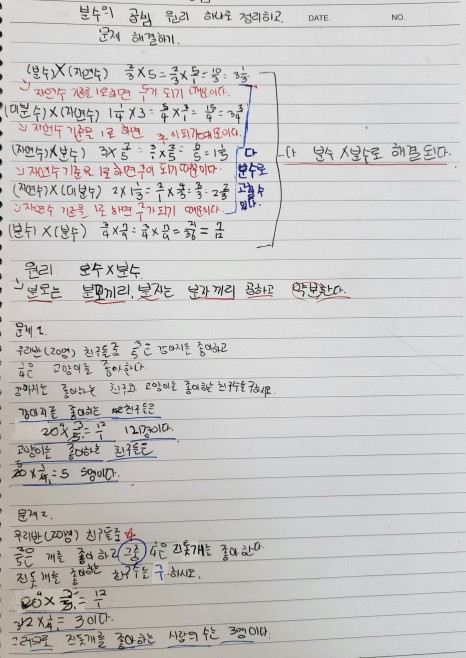 분수의 곱셈 원리 하나로 정리하고, DATE. NO.
문제 해결하기.
(분수)×(자연수) 2/3×5=2/3×5/1=10/3=3 1/3
→ 자연수 기준을 1로하면 5/1가 되기 때문이다.
(대분수)×(자연수) 1 1/4×3=5/4×3/1=15/4=3 3/4
→ 자연수 기준을 1로 하면 3/1이 되기 때문이다.
(자연수)×(분수) 3×2/5=3/1×2/5=6/5=1 1/5
→ 자연수 기준을 1로 하면 3/1이 되기 때문이다.
(자연수)×(대분수) 2×1 1/3=2/1×4/3=8/3=2 2/3
→ 자연수 기준을 1로 하면 2/1가 되기 때문이다.
(분수)×(분수) 3/4×7/9=3/4×7/9=21/36=7/12
다 분수로 고칠수 있다.
다 분수×분수로 해결된다.
원리. 분수×분수.
→ 분모는 분모끼리, 분자는 분자끼리 곱하고 약분한다.
문제 1.
우리반(20명) 친구들중 3/5은 강아지를 좋아하고
1/4은 고양이를 좋아한다.
강아지를 좋아하는 친구와 고양이를 좋아하는 친구수를 구하시오.
강아지를 좋아하는 친구들은
20×3/5=12/1 12명이다.
고양이를 좋아하는 친구들은
20×1/4=5 5명이다.
문제 2.
우리반(20명) 친구들중
3/5은 개를 좋아하고 그중 1/4은 진돗개를 좋아한다.
진돗개를 좋아하는 친구수를 구하시오.
20×3/5=12/1
12×1/4=3이다.
그러므로 진돗개를 좋아하는 사람의 수는 3명이다.